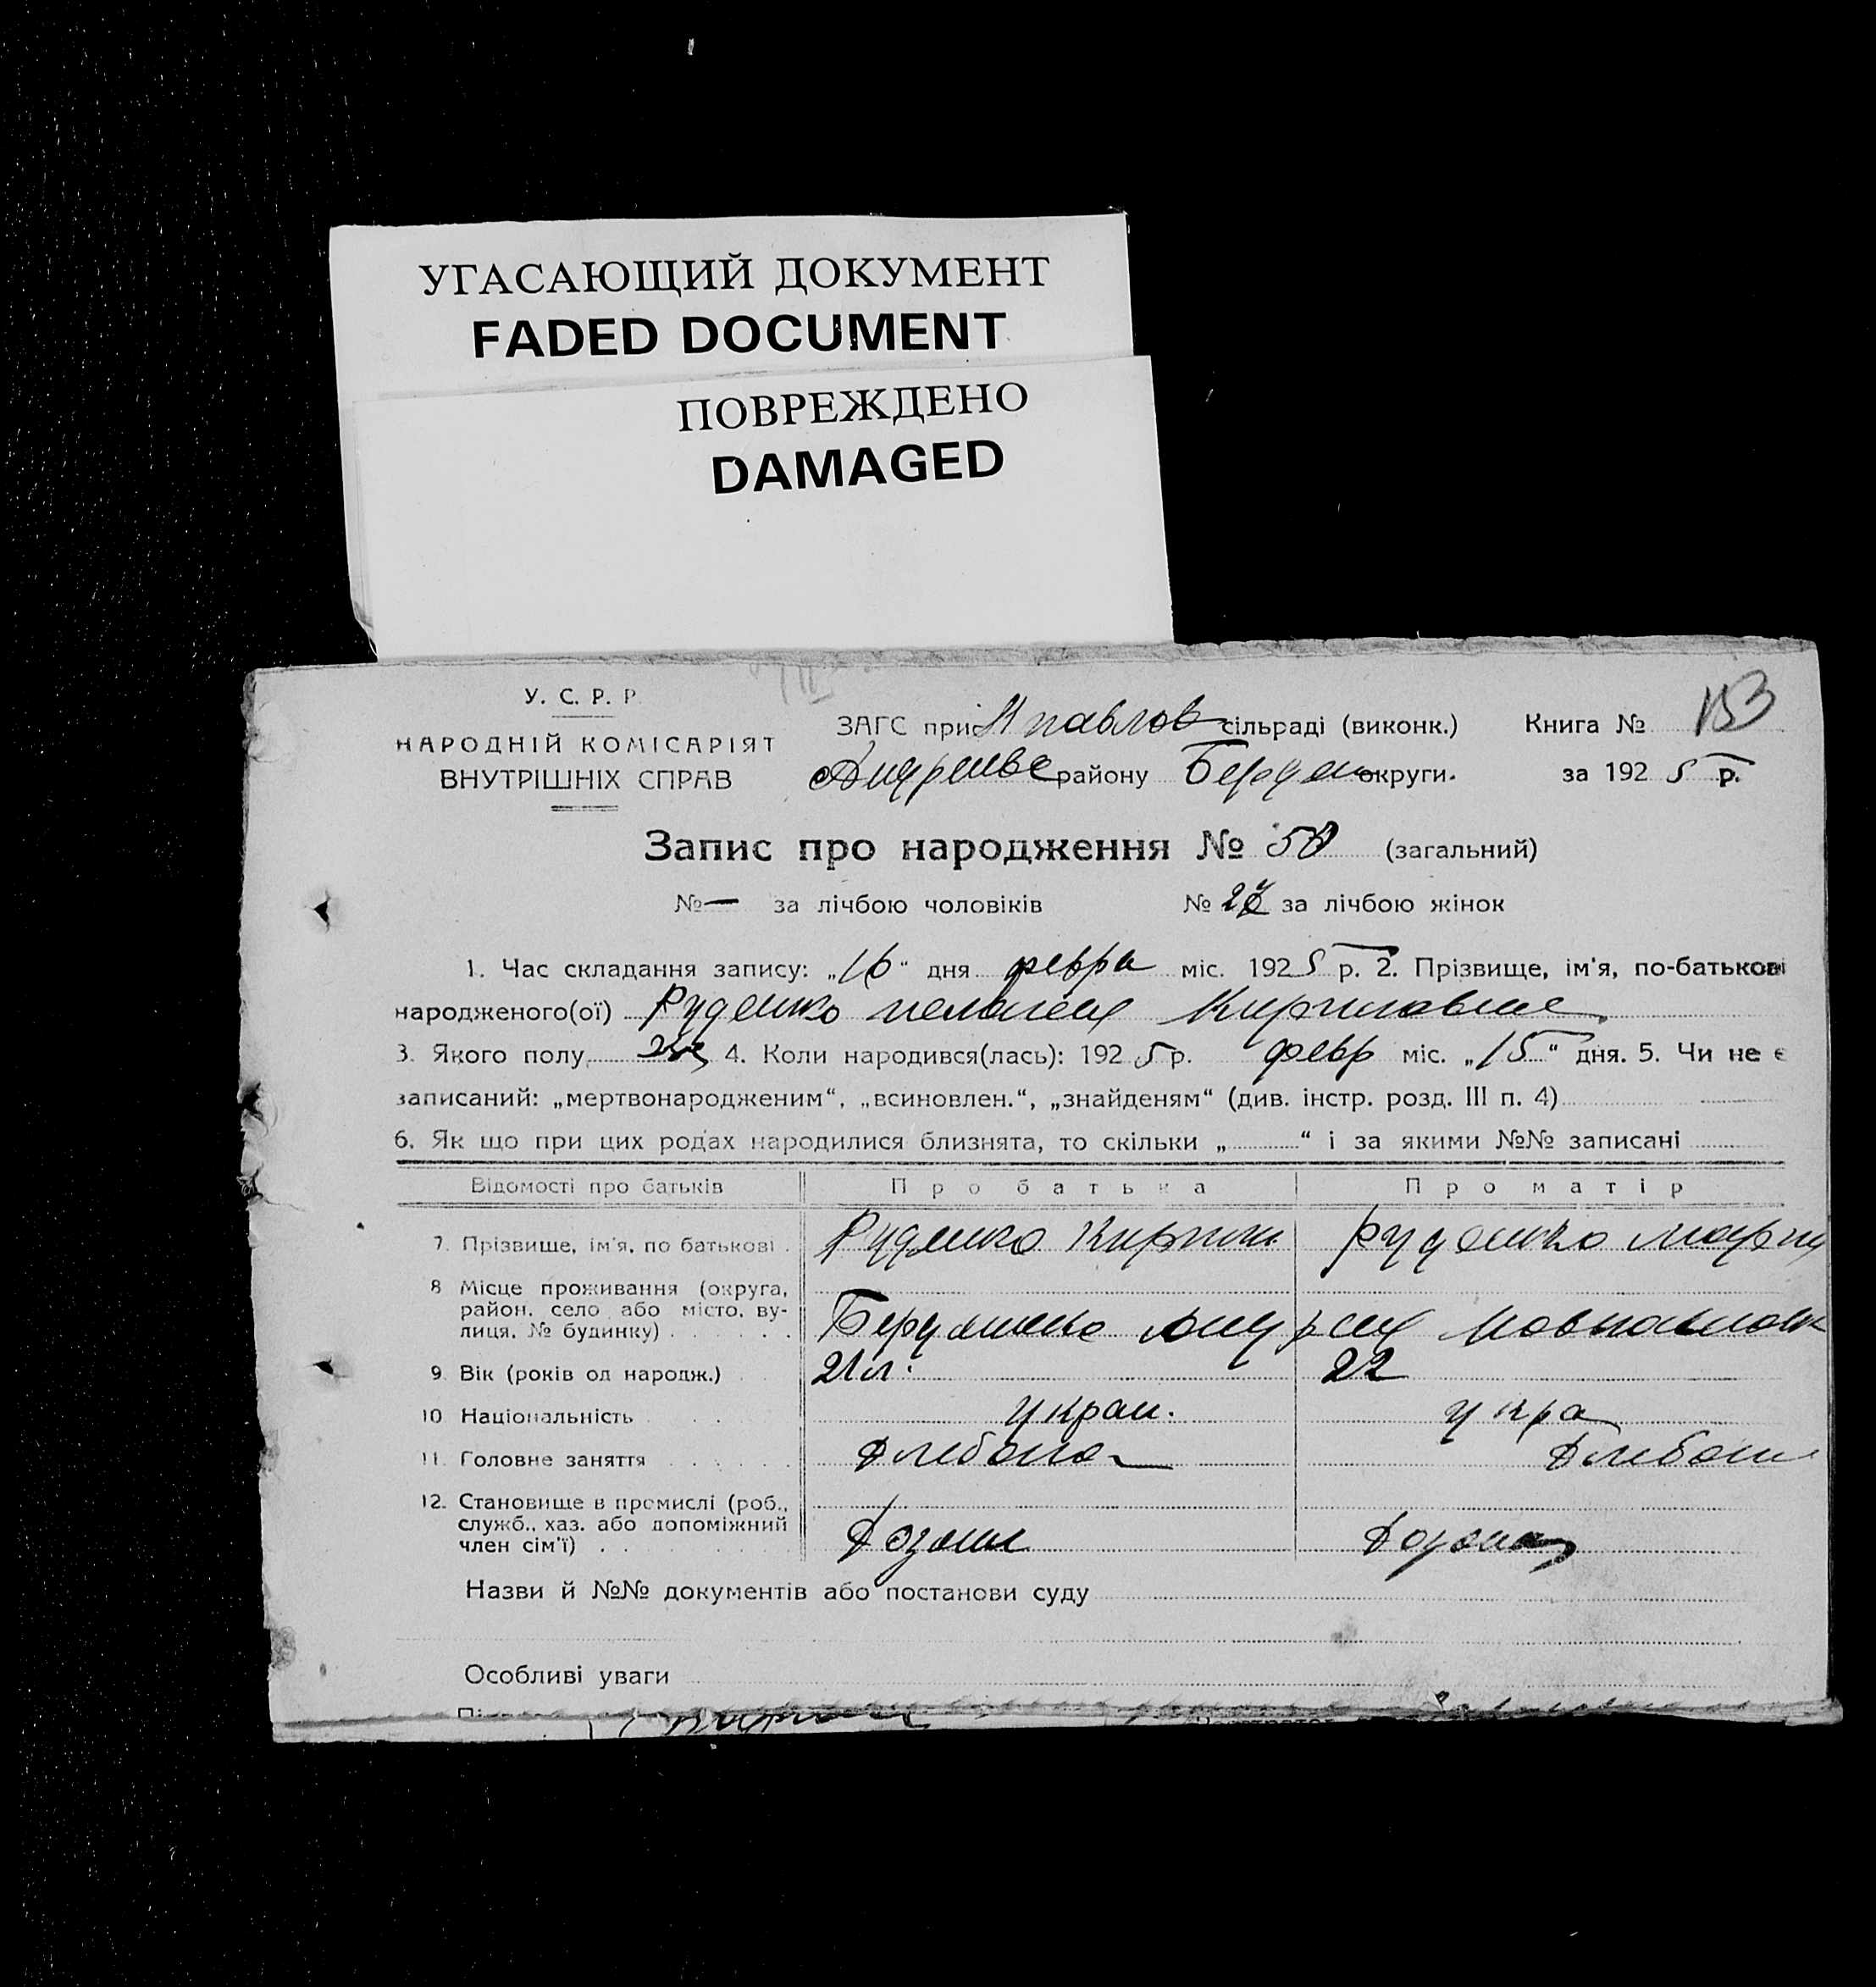 УГАСАЮЩИЙ ДОКУМЕНТ
FADED DOCUMENT
ПОВРЕЖДЕНО
DAMAGED
У. С. Р. Р
НАРОДНІЙ КОМІСАРІЯТ
ВНУТРІШНІХ СПРАВ
ЗАГС при Нпавлов сільраді (виконк.) Книга № 153
району Бердян округи. за 1925 р.
Запис про народження № 50 (загальний)
№ — за лічбою чоловіків № 27 за лічбою жінок
1. Час складання запису: „16“ дня февра міс. 1925 р. 2. Прізвище, ім'я, по-батькові
народженого(ої) Руденко Пелагея Кириловна
3. Якого полу жен 4. Коли народився(лась): 1925 р. февр міс. „15“ дня. 5. Чи не є
записаний: „мертвонародженим“, „всиновлен.“, „знайденям“ (див. інстр. розд. III п. 4)
6. Як що при цих родах народилися близнята, то скільки „ “ і за якими №№ записані
Відомості про батьків Про батька Про матір
7. Прізвище, ім'я, по батькові . Руденко Кирил Руденко Мария
8 Місце проживання (округа,
район, село або місто, ву-
лиця, № будинку) . . . . . .
9. Вік (років од народж.) 21 л. 22
10 Національність . . . украи. укра
11. Головне заняття . . . . . .
12. Становище в промислі (роб.,
служб., хаз. або допоміжний
член сім'ї) . .
Назви й №№ документів або постанови суду
Особливі уваги